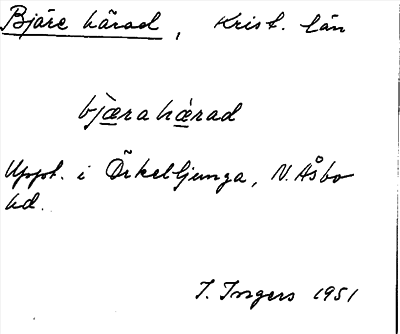 Bjäre härad, Krist. län
bjærahærad
Uppt. i Örkelljunga, N. Åsbo
hd.
I. Ingers 1951